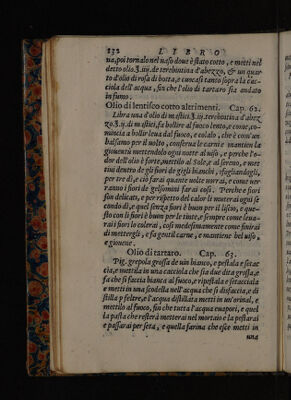 132 LIBRO
ua, poi tornalo nel uaso doue è stato cotto, e metti nel
detto olio ℥.iiij. de terebintina d'abezzo, & un quar
to d'olio di rosa di botta, e cuoci tanto sopra la cac-
ciola dell'acqua, fin che l'olio di tartaro sia andato
in fumo.
Olio di lentisco cotto altrimenti. Cap. 62.
Libra una d'olio di mastici. ℥.iij. terebintina d'abez
zo. ℥.ij. di mastici, fa bollire al fuoco lento, e come, co-
mincia a bollir leua dal fuoco, e colalo, che è com'un
balsamo per il uolto, conserua le carni e mantien la
giouentù mettendolo ogni notte al uiso, e perche l'o-
dor dell'olio è forte, mettilo al Sole, e al sereno, e met
tini dentro de gli fiori de gigli bianchi, sfogliandogli,
per tre dì, e ciò farai quante uolte uorai, e come uer
ranno i fiori de gelsomini farai così. Perche i fiori
son delicati, e per rispetto del calor li muterai ogni se
condo dì, e quel senza fiori è buon per il liscio, e que-
sto con li fiori è buon per le tinte, e sempre come leua-
rai i fiori lo colerai, così medesimamente come finirai
di mettergli, e fa gentil carne, e mantiene bel uiso,
e giouene.
Olio di tartaro. Cap. 63.
Pig. grepola grossa de uin bianco, e pestala e setac
cia, e mettela in una cacciola che sia due dita grossa, e
fa che si faccia bianca al fuoco, e ripestala e setacciala
e metti in una scodella nell'acqua che si disfaccia, e di
stilla p feltre, e l'acqua distillata metti in un'orinal, e
mettilo al fuoco, fin che tutta l'acqua euapori, e quel
la pasta che resterà metterai nel mortaio e la pestarai
e passarai per seta, e quella farina che esce metti in
una